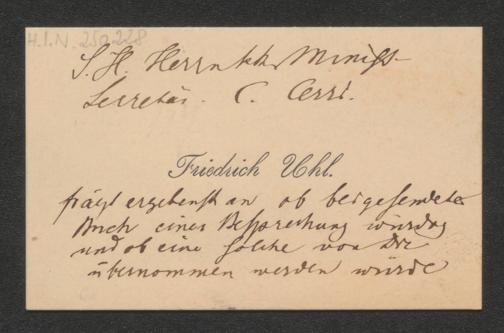 H.I.N. 250.228
S. H. Herrn kk. Minist-
Secretär. C. Cerri.
Friedrich Uhl.
frägt ergebenst an ob beigesendetes
Buch einer Besprechung würdig
und ob eine solche von Dir
übernommen werden würde